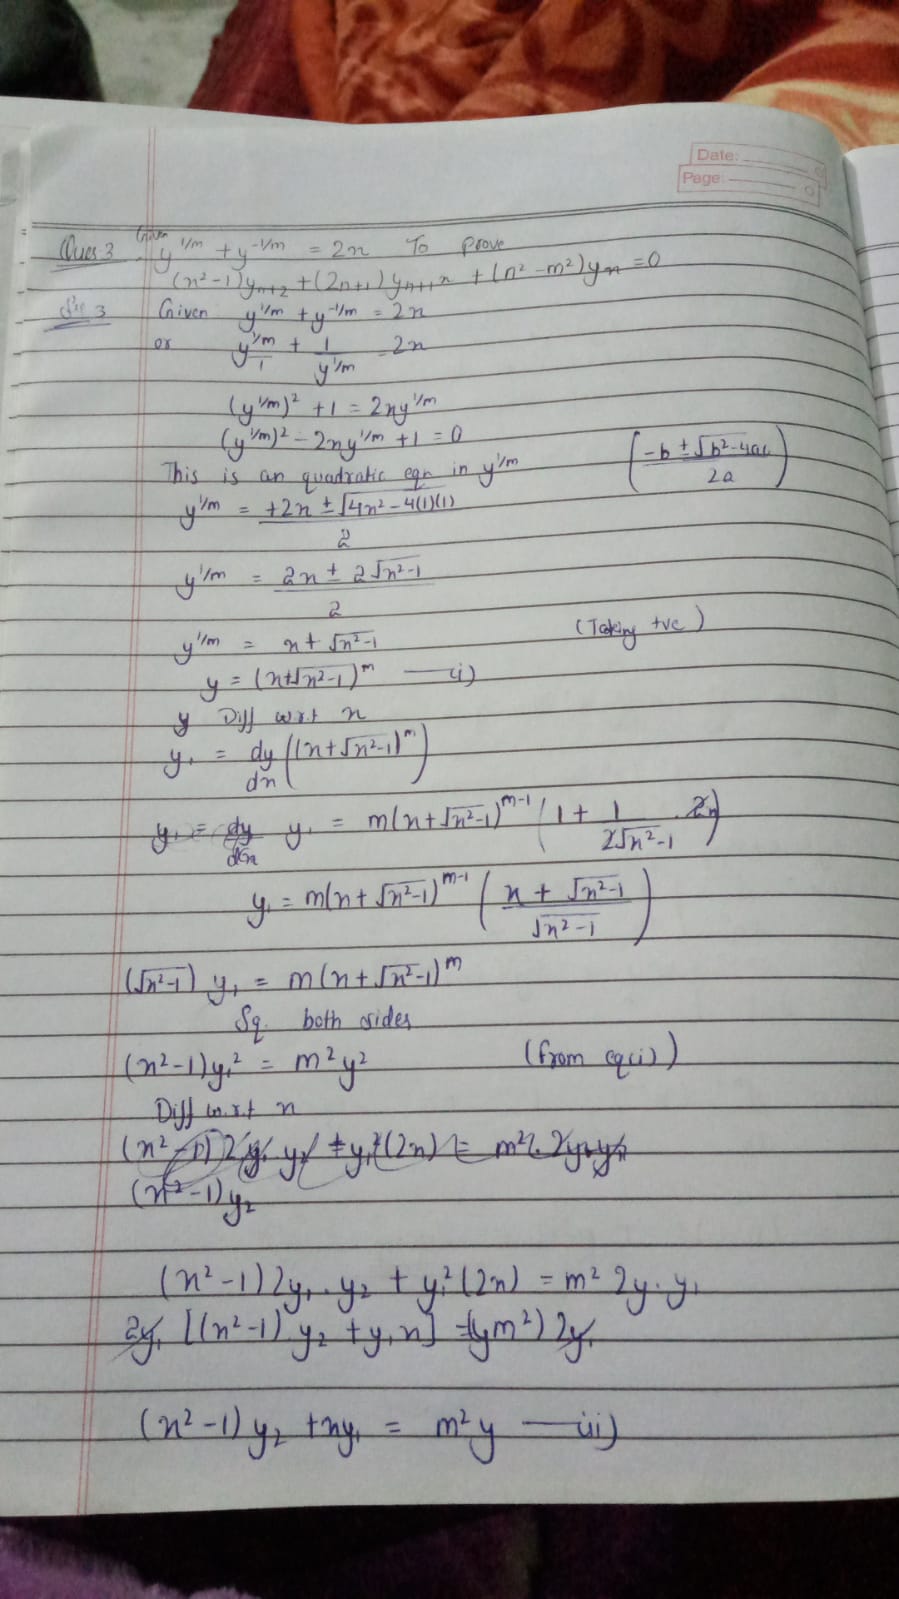 Date:
Page:
Given
Ques 3 y^1/m + y^-1/m = 2x To prove
(x²-1)y_n+2 + (2n+1) y_n+1 x + (n² - m²)y_n = 0
3 Given y^1/m + y^-1/m = 2x
or y^1/m/1 + 1/y^1/m = 2x
(y^1/m)² + 1 = 2xy^1/m
(y^1/m)² - 2xy^1/m + 1 = 0
This is an quadratic eqn in y^1/m (-b ± √b²-4ac / 2a)
y^1/m = +2x ± √4x² - 4(1)(1) / 2
y^1/m = 2x ± 2√x²-1 / 2
y^1/m = x + √x²-1 (Taking +ve)
y = (x+√x²-1)^m — i)
y Diff w.r.t x
y₁ = dy/dx ((x+√x²-1)^m)
y₁ = dy/dx y₁ = m(x+√x²-1)^m-1 (1 + 1/2√x²-1 . 2x)
y₁ = m(x + √x²-1)^m-1 (x + √x²-1 / √x²-1)
(√x²-1) y₁ = m(x + √x²-1)^m
Sq. both sides
(x²-1)y₁² = m²y² (from eq(i))
Diff w.r.t x
(x²-1) 2y₁ y₂ + y₁²(2x) = m² . 2y.y₁
(x²-1)y₂
(x²-1)2y₁.y₂ + y₁²(2x) = m² 2y.y₁
2y₁ [(x²-1) y₂ + y₁x] = (ym²) 2y₁
(x²-1) y₂ + xy₁ = m²y — ii)